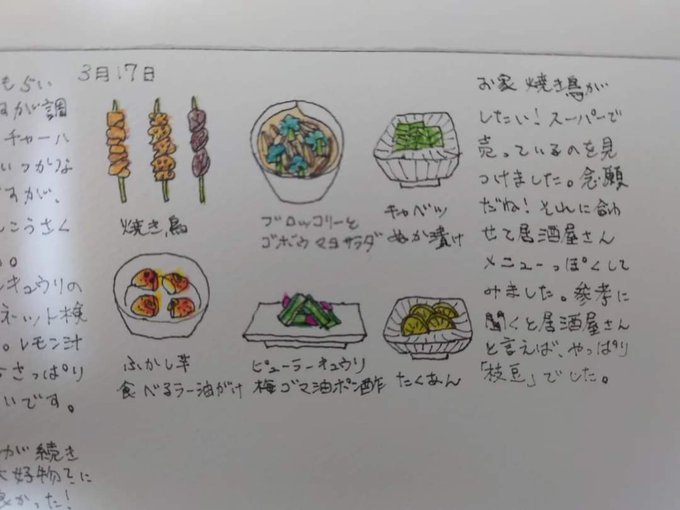 3月17日
もらい
すが調
チャーハ
いつかな
ですが、
んこうさく
キュウリの
ネット検
。レモン汁
さっぱり
いです。
が続き
大好物てに
良かった!
焼き鳥
ブロッコリーと
ゴボウマヨサラダ
キャベツ
ぬか漬け
ふかし芋
食べるラー油がけ
ピューラーキュウリ
梅ゴマ油ポン酢
たくあん
お家焼き鳥が
したい!スーパーで
売っているのを見
つけました。念願
だね!それに合わ
せて居酒屋さん
メニューっぽくして
みました。参孝に
聞くと居酒屋さん
と言えば、やっぱり
「枝豆」でした。